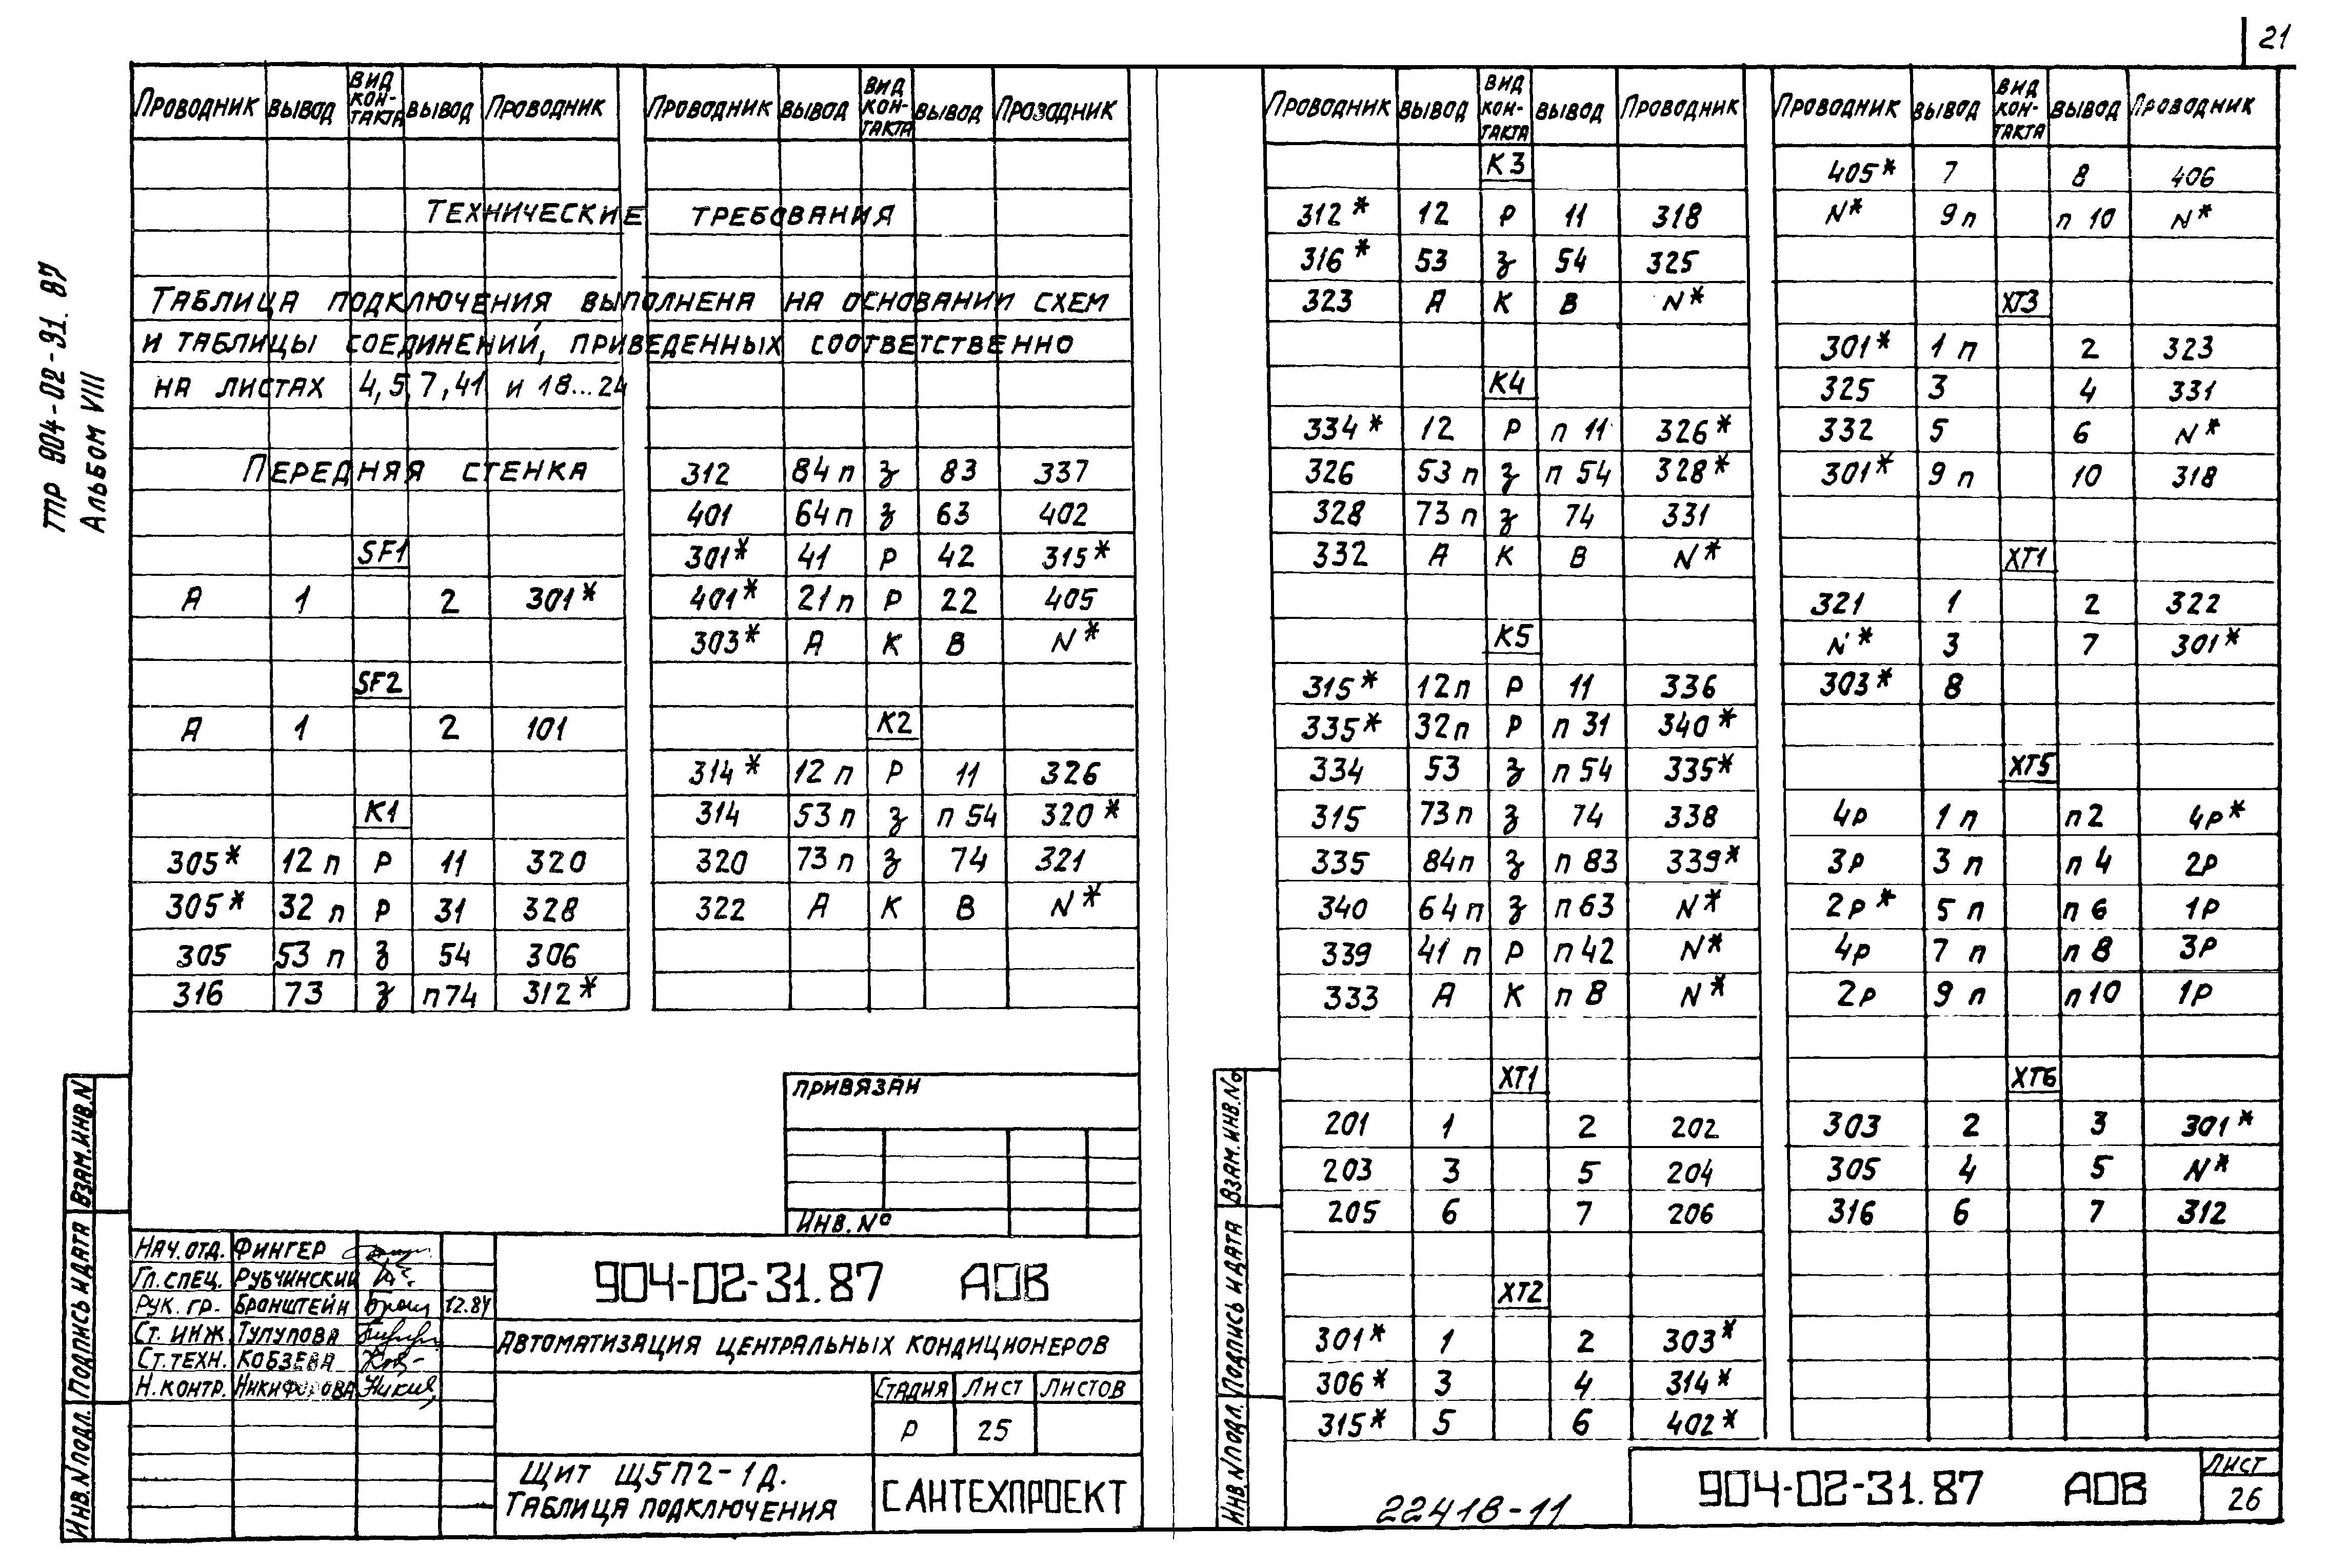 21
ТПР 904-02-91.87
Альбом VIII
Проводник вывод вид кон-такта вывод Проводник
Проводник вывод вид кон-такта вывод Проводник
Технические требования
Таблица подключения выполнена на основании схем
и таблицы соединений, приведенных соответственно
на листах 4,5,7,41 и 18...24
Передняя стенка
SF1
А 1 2 301*
SF2
А 1 2 101
К1
305* 12 п Р 11 320
305* 32 п Р 31 328
305 53 п З 54 306
316 73 З п74 312*
312 84 п З 83 337
401 64 п З 63 402
301* 41 Р 42 315*
401* 21 п Р 22 405
303* А К В N*
К2
314* 12 п Р 11 326
314 53 п З п 54 320*
320 73 п З 74 321
322 А К В N*
привязан
Инв. №
Нач. отд. Фингер
Гл. спец. Рубчинский
Рук. гр. Бронштейн 12.87
Ст. инж Тулупова
Ст. техн. Кобзева
Н. контр. Никифорова
904-02-31.87 АОВ
Автоматизация центральных кондиционеров
Стадия Лист Листов
Р 25
Щит Щ5П2-1Д.
Таблица подключения
САНТЕХПРОЕКТ
Взам. инв. N
Подпись и дата
Инв. N подл.
Проводник вывод вид кон-такта вывод Проводник
К3
312* 12 Р 11 318
316* 53 З 54 325
323 А К В N*
К4
334* 12 Р п 11 326*
326 53 п З п 54 328*
328 73 п З 74 331
332 А К В N*
К5
315* 12 п Р 11 336
335* 32 п Р п 31 340*
334 53 З п 54 335*
315 73 п З 74 338
335 84 п З п 83 339*
340 64 п З п 63 N*
339 41 п Р п 42 N*
333 А К п В N*
ХТ1
201 1 2 202
203 3 5 204
205 6 7 206
ХТ2
301* 1 2 303*
306* 3 4 314*
315* 5 6 402*
Проводник вывод вид кон-такта вывод Проводник
405* 7 8 406
N* 9 п п 10 N*
ХТ3
301* 1 п 2 323
325 3 4 331
332 5 6 N*
301* 9 п 10 318
ХТ1
321 1 2 322
N* 3 7 301*
303* 8
ХТ5
4Р 1 п п 2 4Р*
3Р 3 п п 4 2Р
2Р* 5 п п 6 1Р
4Р 7 п п 8 3Р
2Р 9 п п 10 1Р
ХТ6
303 2 3 301*
305 4 5 N*
316 6 7 312
Взам. инв. №
Подпись и дата
Инв. N подл.
22418-11
904-02-31.87 АОВ
Лист
26